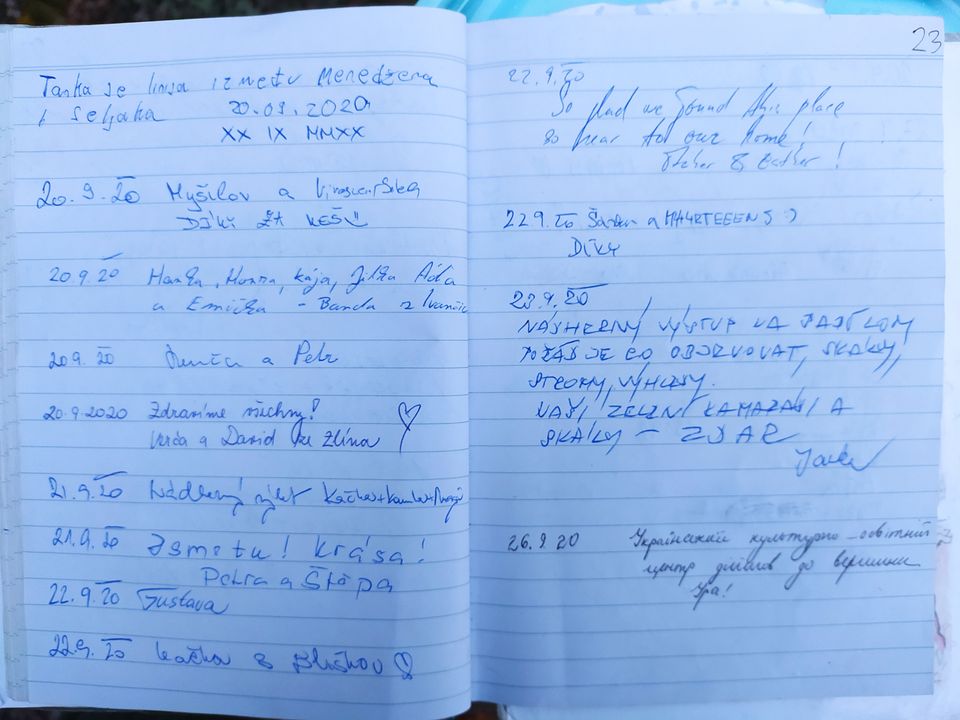 Tanka je linija između Menedžera
i seljaka 20.09.2020
XX IX MMXX
20.9.20 Myšilov a
DÍKY ZA KEŠ!!
20.9.20 Hanka, Honza, Kája, Jitka Áďa
a Emička - Banda z Ivančic
20.9.20 a Petr
20.9.2020 Zdravíme všechny!
Verča a David ze Zlína
21.9.20 Nádherný výlet
21.9.20 Jsme tu! Krása!
Petra a Štěpa
22.9.20 Gustava
22.9.20 Kačka s
23
22.9.20
So glad we found this place
so near to our home!
& Esther!
22.9.20 a MAARTEEENS :)
DÍKY
23.9.20
NÁDHERNÝ VÝSTUP NA
POŘÁD JE CO OBJEVOVAT, SKÁLY,
STROMY, VÝHLEDY.
NAŠI ZELENÍ KAMARÁDI A
SKÁLY - ZDAR
26.9.20 Український культурно-освітний
центр дійшов до вершини
Ура!